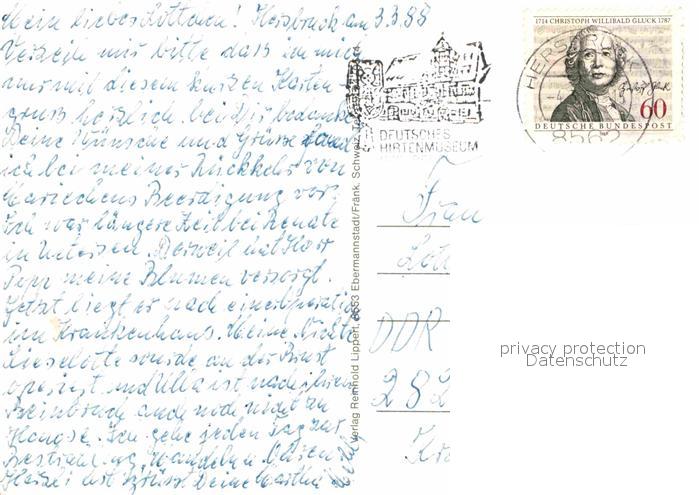 Mein liebes Lottchen! Hersbruck am 3.3.88
Verzeih mir bitte daß ich mich
nur mit diesem kurzen Karten-
gruß herzlich bei Dir bedanke
Deine Wünsche und Grüße fand
ich bei meiner Rückkehr von
Mariechens Beerdigung vor.
Ich war längere Zeit bei Renate
in Uetersen. Derweil hat Herr
Popp meine Blumen versorgt.
Jetzt liegt er nach einer Operation
im Krankenhaus. Meine Nichte
Lieselotte wurde an der Brust
operiert und Ulla ist nach ihrem
Beinbruch auch noch nicht zu
Hause. Ich gehe jeden Tag zur
Bestrahlung,
Deine
Verlag Reinhold Lippert, 8553 Ebermannstadt/Fränk. Schweiz,
DEUTSCHES
HIRTENMUSEUM
1714 CHRISTOPH WILLIBALD GLUCK 1787
60
DEUTSCHE BUNDESPOST
HERSBRUCK
8562
Frau
DDR
282
privacy protection
Datenschutz